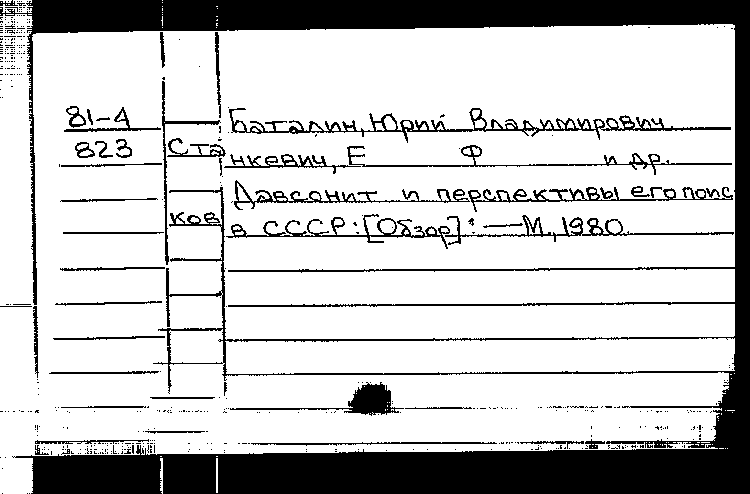 81-4 Баталин, Юрий Владимирович.
823 Станкевич, Е Ф и др.
Давсонит и перспективы его поис
ков в СССР: [Обзор]. — М., 1980